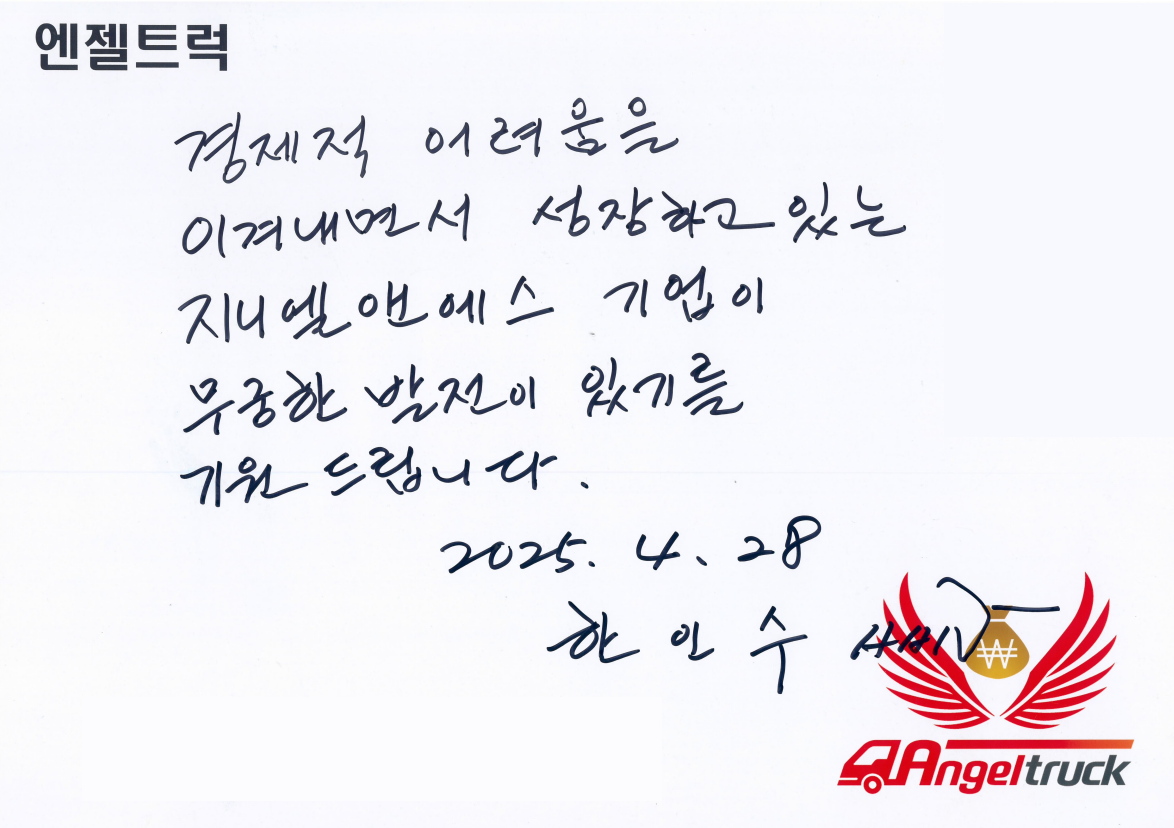 엔젤트럭
경제적 어려움은
이겨내면서 성장하고 있는
지니엘앤에스 기업이
무궁한 발전이 있기를
기원 드립니다.
2025. 4. 28
한인수
₩
Angeltruck